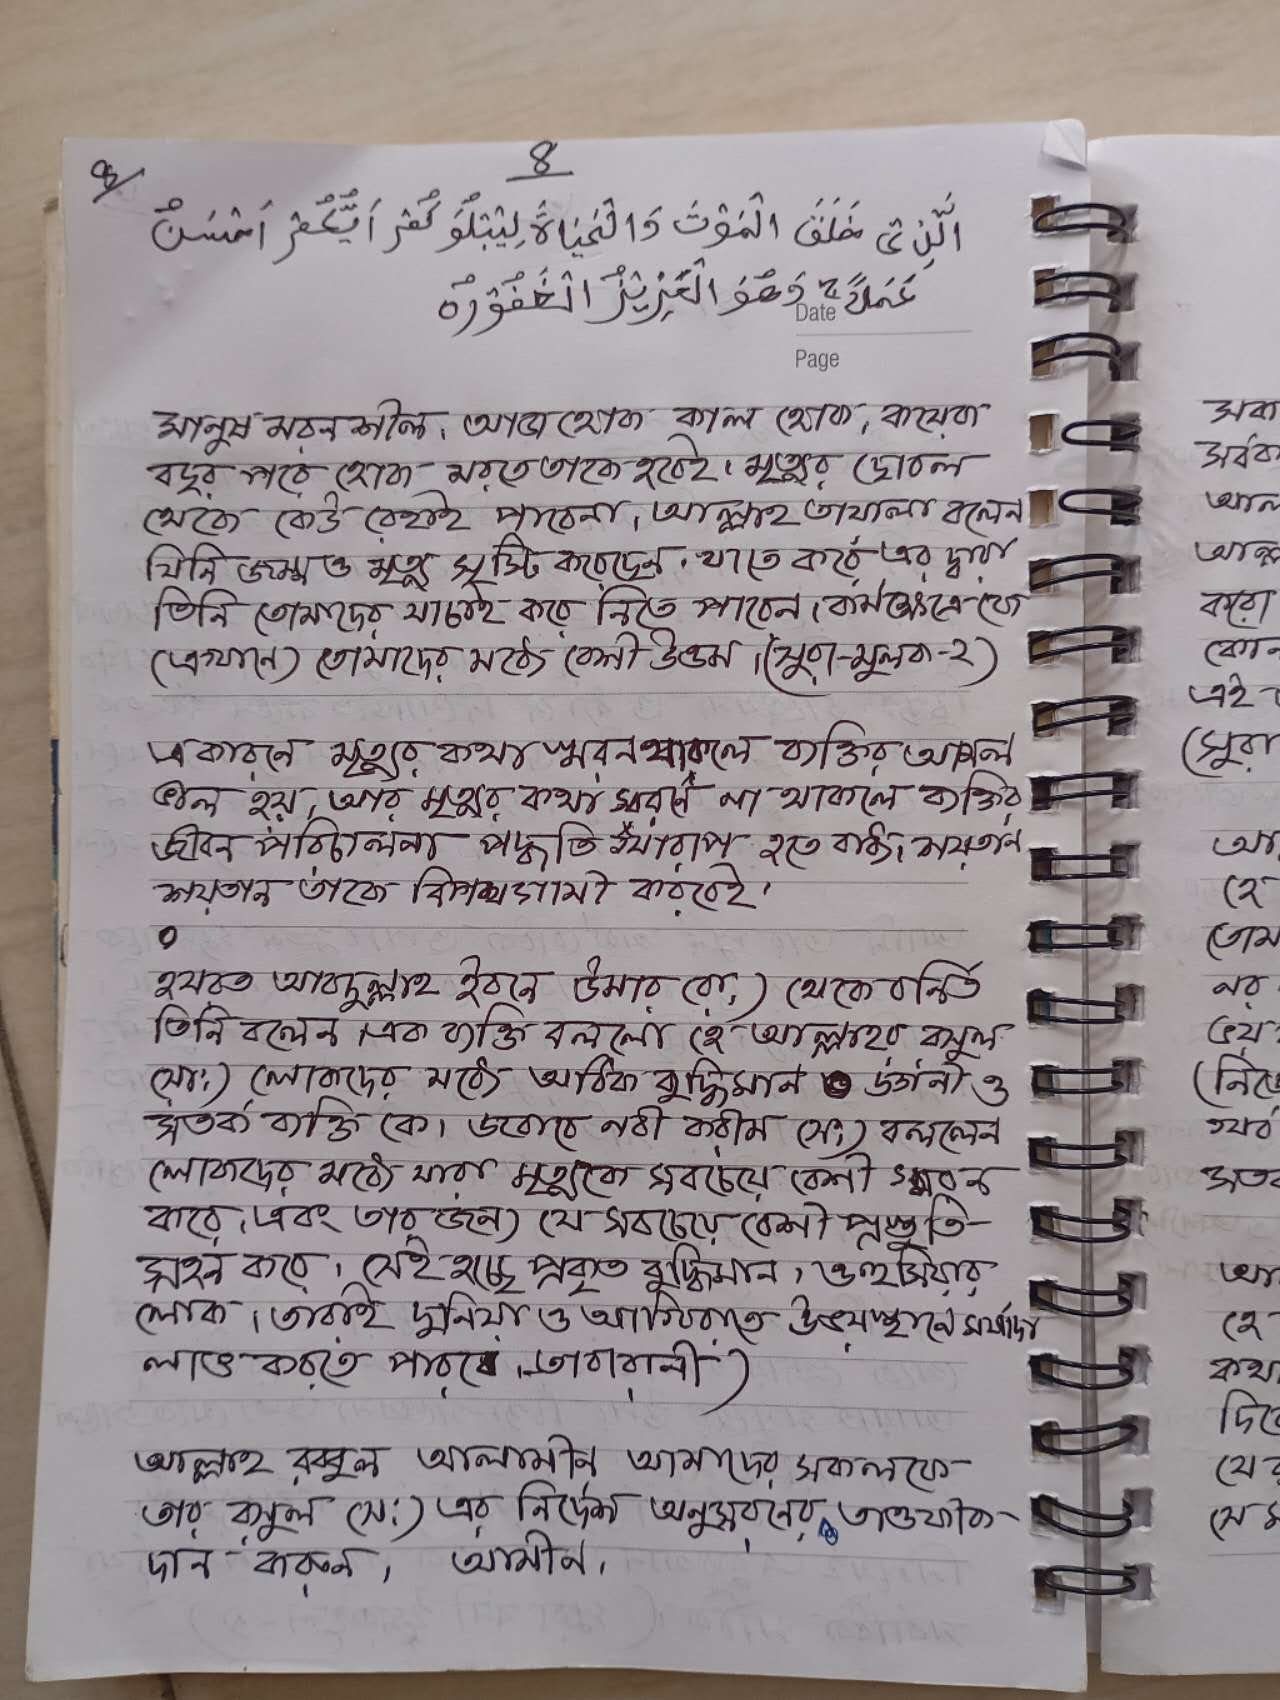 8
8
الَّذِىْ خَلَقَ الْمَوْتَ وَالْحَيٰاةَ لِيَبْلُوَكُمْ اَيُّكُمْ اَحْسَنُ
عَمَلًا ؕ وَهُوَ الْعَزِيْزُ الْغَفُوْرُ
Date
Page
মানুষ মরনশীল। আজ হোক কাল হোক, কয়েক
বছর পরে হোক মরতে তাকে হবেই। মৃত্যুর ছোবল
থেকে কেউ রেহাই পাবেনা। আল্লাহ তায়ালা বলেন
যিনি জন্ম ও মৃত্যু সৃস্টি করেছেন। যাতে করে এর দ্বারা
তিনি তোমাদের যাচাই করে নিতে পারেন। কর্মক্ষেত্রে কে
(এখানে) তোমাদের মধ্যে বেশী উত্তম। (সুরা-মুলক-২)
একারনে মৃত্যুর কথা স্মরন থাকলে ব্যক্তির আমল
ভাল হয়, আর মৃত্যুর কথা স্মরণে না থাকলে ব্যক্তির
জীবন পরিচালনা পদ্ধতি খারাপ হতে বাধ্য। শয়তান
শয়তান তাকে বিপথগামী করবেই।
০
হযরত আবদুল্লাহ ইবনে উমার (রা:) থেকে বর্নিত
তিনি বলেন। এক ব্যক্তি বললো হে আল্লাহর রসুল
(সা:) লোকদের মধ্যে অধিক বুদ্ধিমান ও জ্ঞানী ও
সতর্ক ব্যক্তি কে। জবাবে নবী করীম (স:) বললেন
লোকদের মধ্যে যারা মৃত্যুকে সবচেয়ে বেশী স্মরন
করে, এবং তার জন্য যে সবচেয়ে বেশী প্রস্তুতি
গ্রহন করে। সেই হচ্ছে প্রকৃত বুদ্ধিমান, ও হুসিয়ার
লোক। তারাই দুনিয়া ও আখিরাতে উভয়স্থানে মর্যাদা
লাভ করতে পারবে। তাবারানী)
আল্লাহ রব্বুল আলামীন আমাদের সকলকে
তার রসুল (স:) এর নির্দেশ অনুসরনের তাওফীক
দান করুন, আমীন।